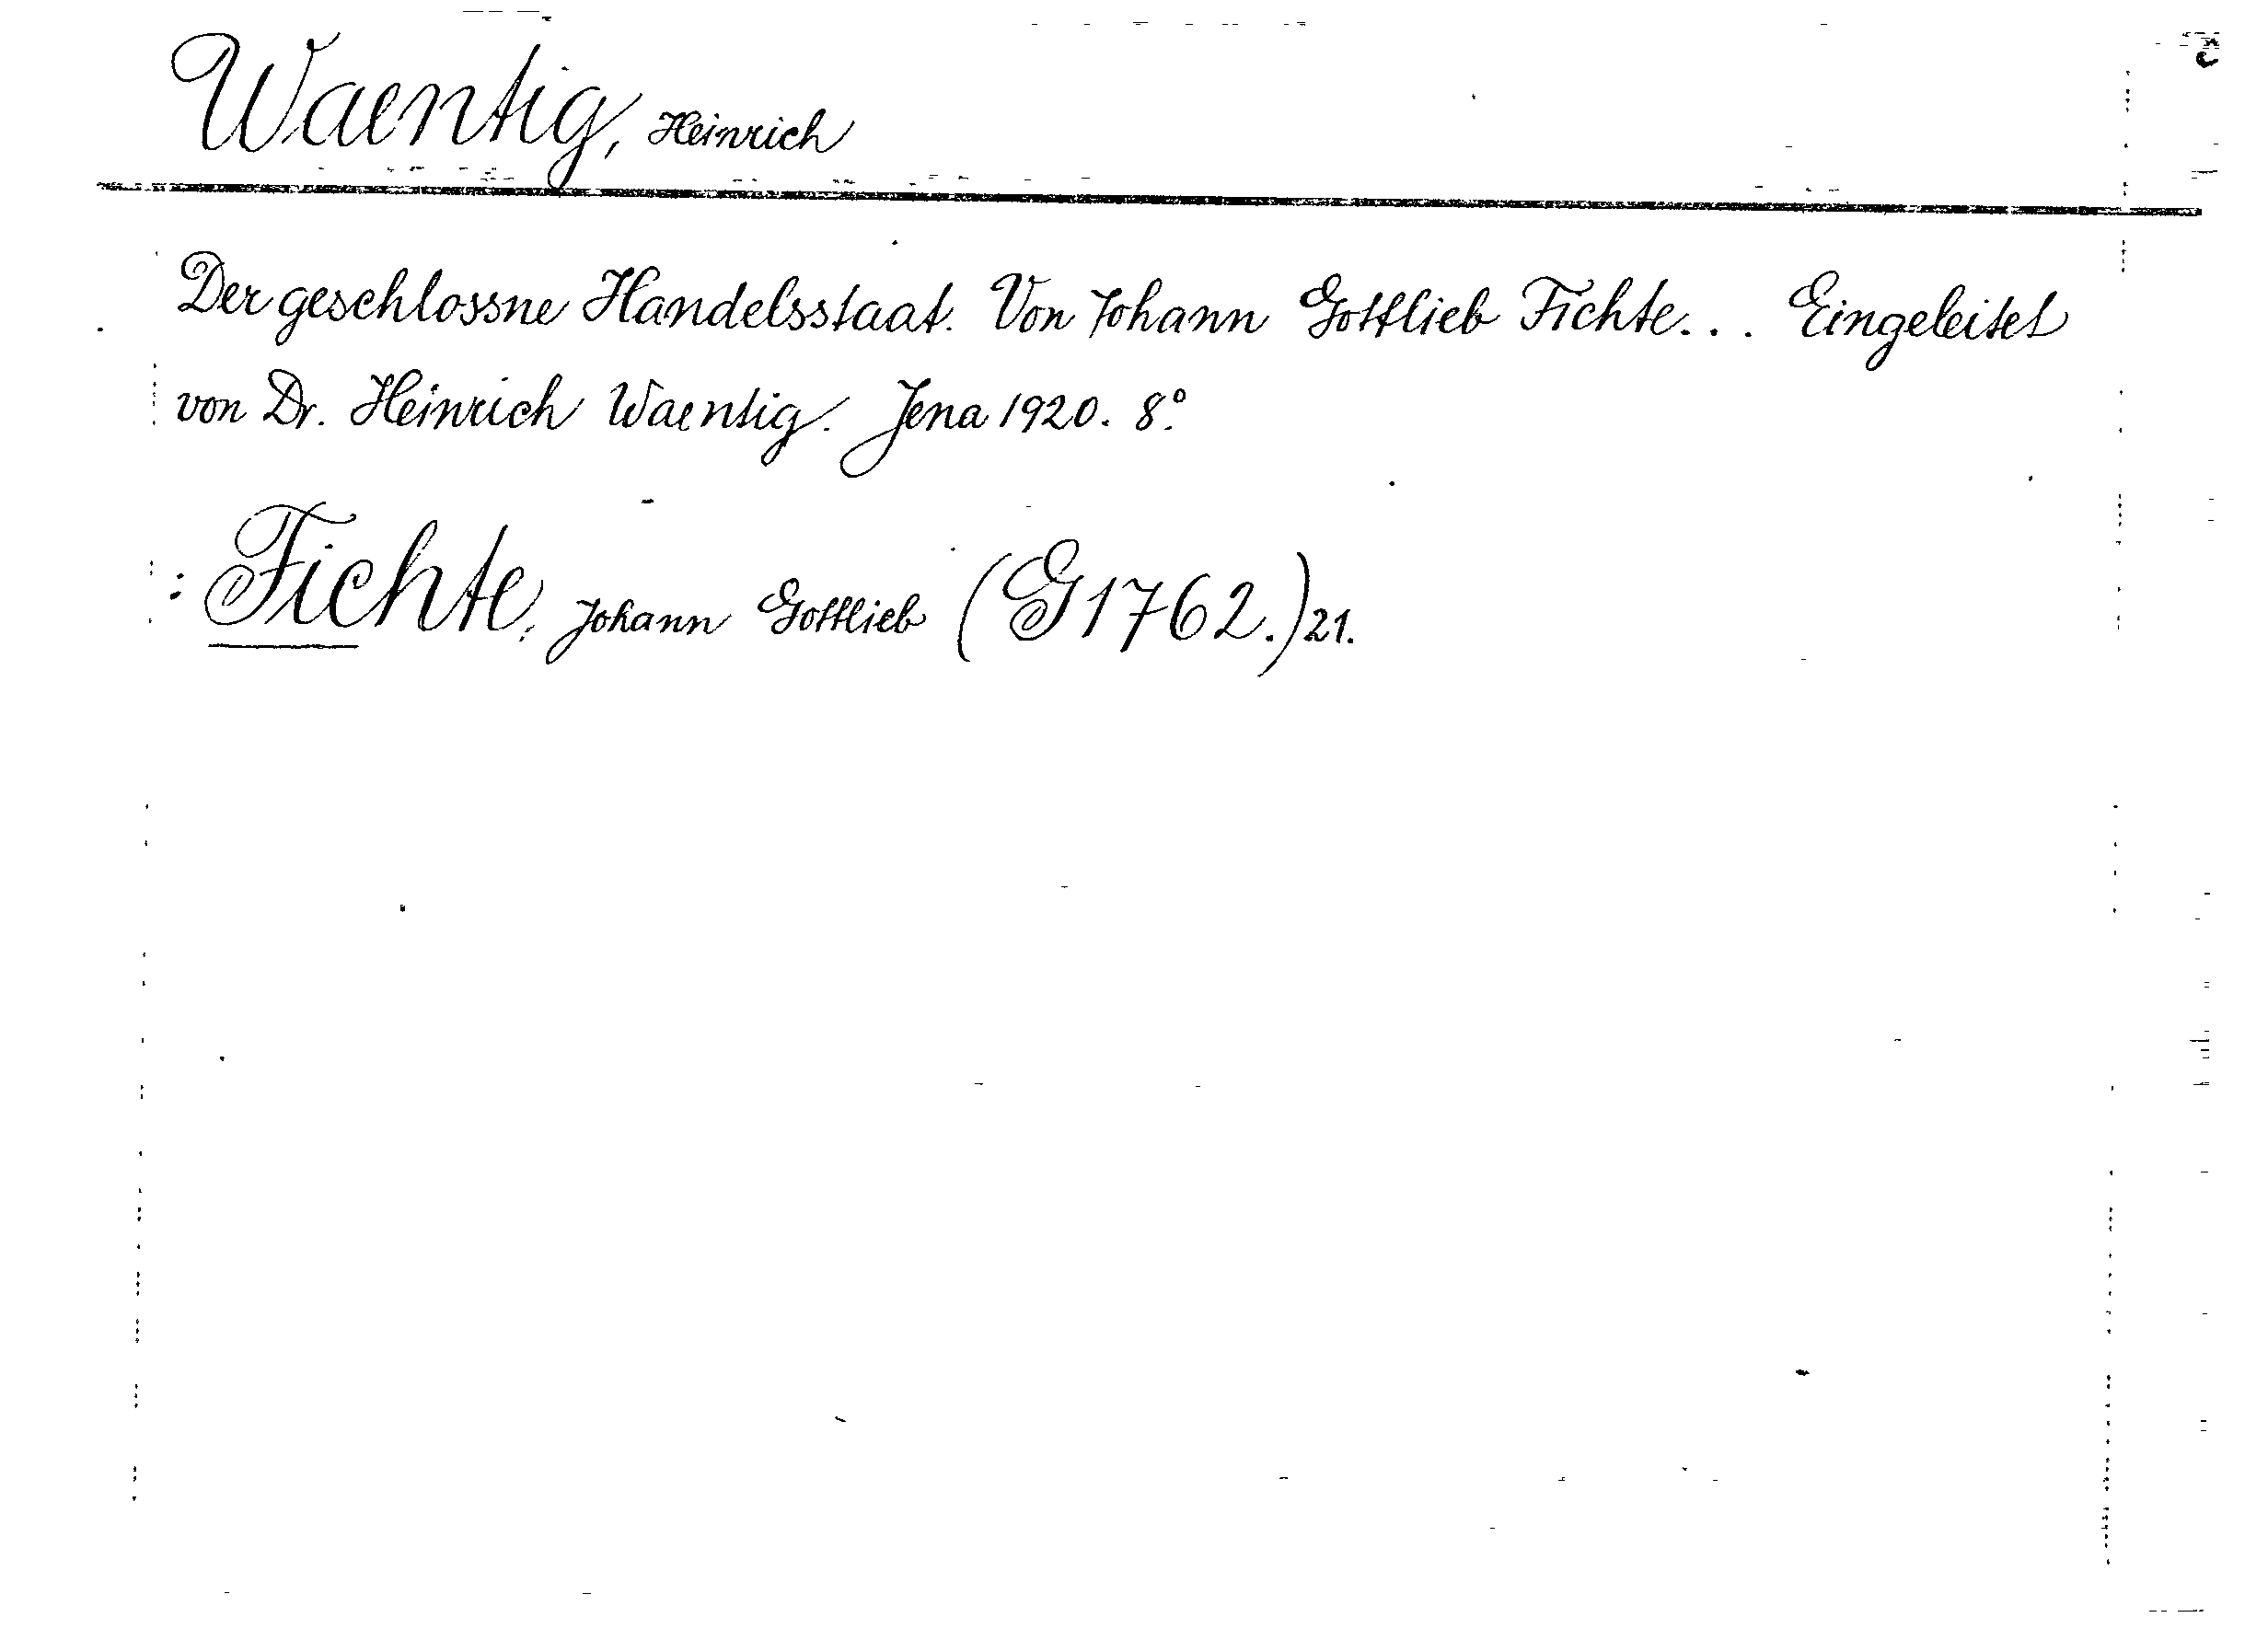 Waentig, Heinrich
Der geschlossne Handelsstaat. Von Johann Gottlieb Fichte... Eingeleitet
von Dr. Heinrich Waentig. Jena 1920. 8°.
: Fichte, Johann Gottlieb (G1762.) 21.